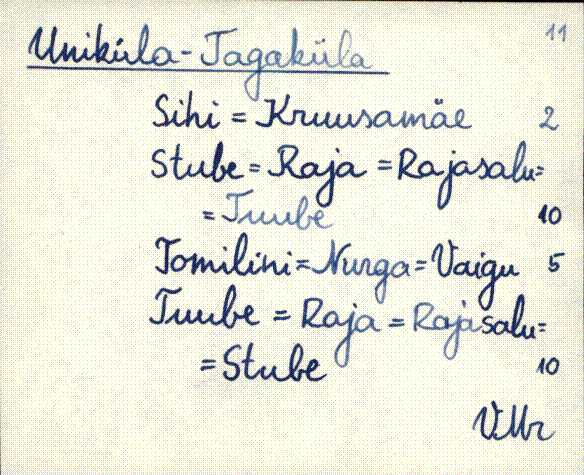 11
Uniküla-Jagaküla
Sihi = Kruusamäe 2
Stube = Raja = Rajasalu=
= Tuube 10
Tomilini = Nurga = Vaigu 5
Tuube = Raja = Rajasalu=
= Stube 10